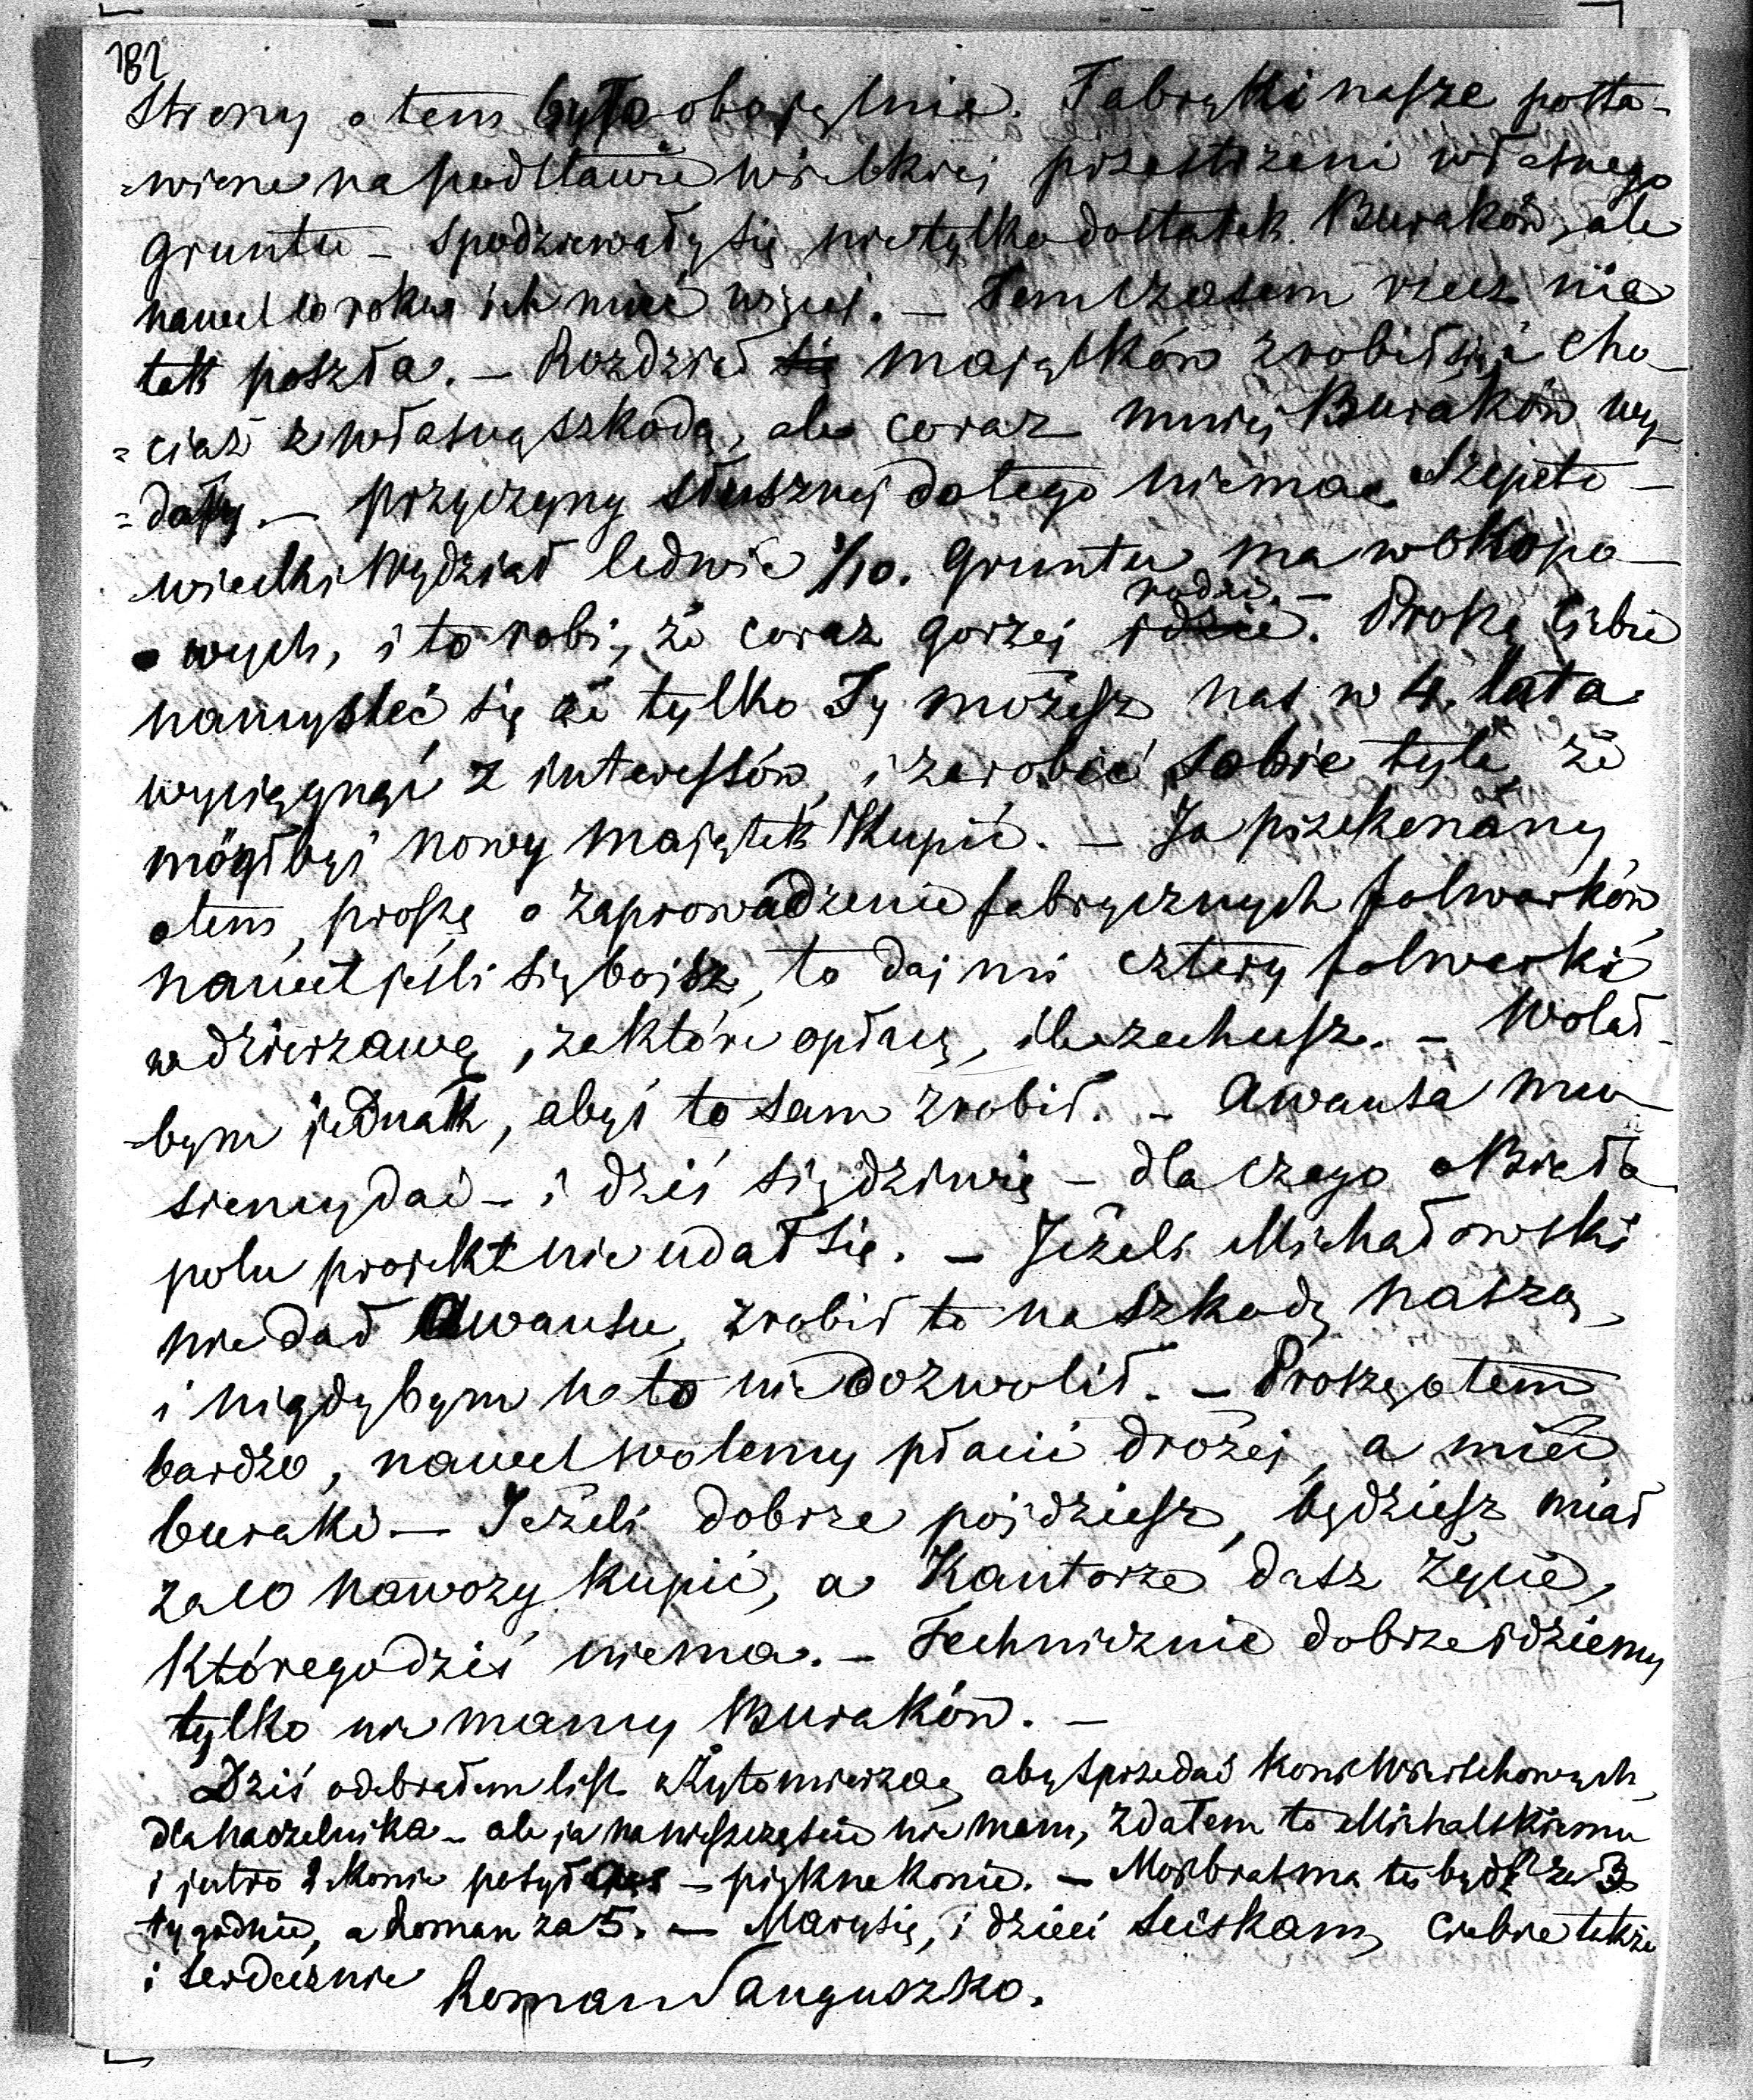 182
Strony o tem było obojętnie. Fabryki nasze posta-
=wione na podstawie wielkiej przestrzeni własnego
gruntu – spodziewały się nietylko dostatek Buraków, ale
nawet co roku ich mieć więcej. – Tem czasem rzecz nie
tak poszła. – Rozdział się majątków zrobił się, i cho-
=ciaż z własną szkodą, ale coraz mniej Buraków wy-
=dały. – przyczyny słusznej do tego niema. Szepeto-
wiecki Wydział ledwie 1/10. gruntu ma w okopo-
wych, i to robi, że coraz gorzej idzie. rodzi. – Proszę Ciebie
namysleć się że tylko Ty możesz nas w 4. lata
wyciągnąć z interessów, i zarobić sobie tyle, że
mógłbyś nowy majątek Kupić. – Ja przekonany
o tem, proszę o zaprowadzenie fabrycznych folwarków
nawet jeśli się boisz, to daj mi cztery folwarki
w dzierżawę, za które opłacę, ile zechcesz. – Wolał-
=bym jednak, abyś to sam zrobił. – Awansa mu-
siemy dać – i dziś się dziwię – dla czego o Biało
polu projekt nie udał się. – Jeżeli Michałowski
nie dał Awansu, zrobił to na szkodę naszą,
i nigdybym na to nie dozwolił. – Proszę o tem
bardzo, nawet wolemy płacić drożej, a mieć
buraki – Jeżeli dobrze pójdziesz, będziesz miał
za co nawozy kupić, a Kantorze dasz życie,
którego dziś niema. – Technicznie dobrze idziemy
tylko nie mamy Buraków. –
Dziś odebrałem list z Żytomierza, aby sprzedać koni Wierzchowych,
dla naczelnika – ale ja na nieszczęście nie mam, zdałem to Michalskiemu
i jutro 2 konie – piękne konie. – Mój brat ma tu być za 3
tygodnie, a Roman za 5. – Marysię, i dzieci sciskam, Ciebie także
i serdecznie Roman Sanguszko.